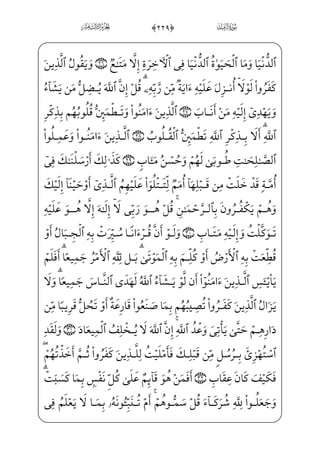 ﴿٢٢٩﴾
ٱلدُّنْيَا وَمَا ٱلْحَيَوٰةُ ٱلدُّنْيَا فِى ٱلْـَٔاخِرَةِ إِلَّا مَتَـٰعٌ ٢٦ وَيَقُولُ ٱلَّذِينَ
كَفَرُوا۟ لَوْلَآ أُنزِلَ عَلَيْهِ ءَايَةٌ مِّن رَّبِّهِۦ ۗ قُلْ إِنَّ ٱللَّهَ يُضِلُّ مَن يَشَآءُ
وَيَهْدِىٓ إِلَيْهِ مَنْ أَنَابَ ٢٧ ٱلَّذِينَ ءَامَنُوا۟ وَتَطْمَئِنُّ قُلُوبُهُم بِذِكْرِ
ٱللَّهِ ۗ أَلَا بِذِكْرِ ٱللَّهِ تَطْمَئِنُّ ٱلْقُلُوبُ ٢٨ ٱلَّذِينَ ءَامَنُوا۟ وَعَمِلُوا۟
ٱلصَّـٰلِحَـٰتِ طُوبَىٰ لَهُمْ وَحُسْنُ مَـَٔابٍ ٢٩ كَذَٰلِكَ أَرْسَلْنَـٰكَ فِىٓ
أُمَّةٍ قَدْ خَلَتْ مِن قَبْلِهَآ أُمَمٌ لِّتَتْلُوَا۟ عَلَيْهِمُ ٱلَّذِىٓ أَوْحَيْنَآ إِلَيْكَ
وَهُمْ يَكْفُرُونَ بِٱلرَّحْمَـٰنِ ۚ قُلْ هُوَ رَبِّى لَآ إِلَـٰهَ إِلَّا هُوَ عَلَيْهِ
تَوَكَّلْتُ وَإِلَيْهِ مَتَابِ ٣٠ وَلَوْ أَنَّ قُرْءَانًا سُيِّرَتْ بِهِ ٱلْجِبَالُ أَوْ
قُطِّعَتْ بِهِ ٱلْأَرْضُ أَوْ كُلِّمَ بِهِ ٱلْمَوْتَىٰ ۗ بَل لِّلَّهِ ٱلْأَمْرُ جَمِيعًا ۗ أَفَلَمْ
يَا۟يْـَٔسِ ٱلَّذِينَ ءَامَنُوٓا۟ أَن لَّوْ يَشَآءُ ٱللَّهُ لَهَدَى ٱلنَّاسَ جَمِيعًا ۗ وَلَا
يَزَالُ ٱلَّذِينَ كَفَرُوا۟ تُصِيبُهُم بِمَا صَنَعُوا۟ قَارِعَةٌ أَوْ تَحُلُّ قَرِيبًا مِّن
دَارِهِمْ حَتَّىٰ يَأْتِىَ وَعْدُ ٱللَّهِ ۚ إِنَّ ٱللَّهَ لَا يُخْلِفُ ٱلْمِيعَادَ ٣١ وَلَقَدِ
ٱسْتُهْزِئَ بِرُسُلٍ مِّن قَبْلِكَ فَأَمْلَيْتُ لِلَّذِينَ كَفَرُوا۟ ثُمَّ أَخَذْتُهُمْ ۖ
فَكَيْفَ كَانَ عِقَابِ ٣٢ أَفَمَنْ هُوَ قَآئِمٌ عَلَىٰ كُلِّ نَفْسٍۭ بِمَا كَسَبَتْ ۗ
وَجَعَلُوا۟ لِلَّهِ شُرَكَآءَ قُلْ سَمُّوهُمْ ۚ أَمْ تُنَبِّـُٔونَهُۥ بِمَا لَا يَعْلَمُ فِى